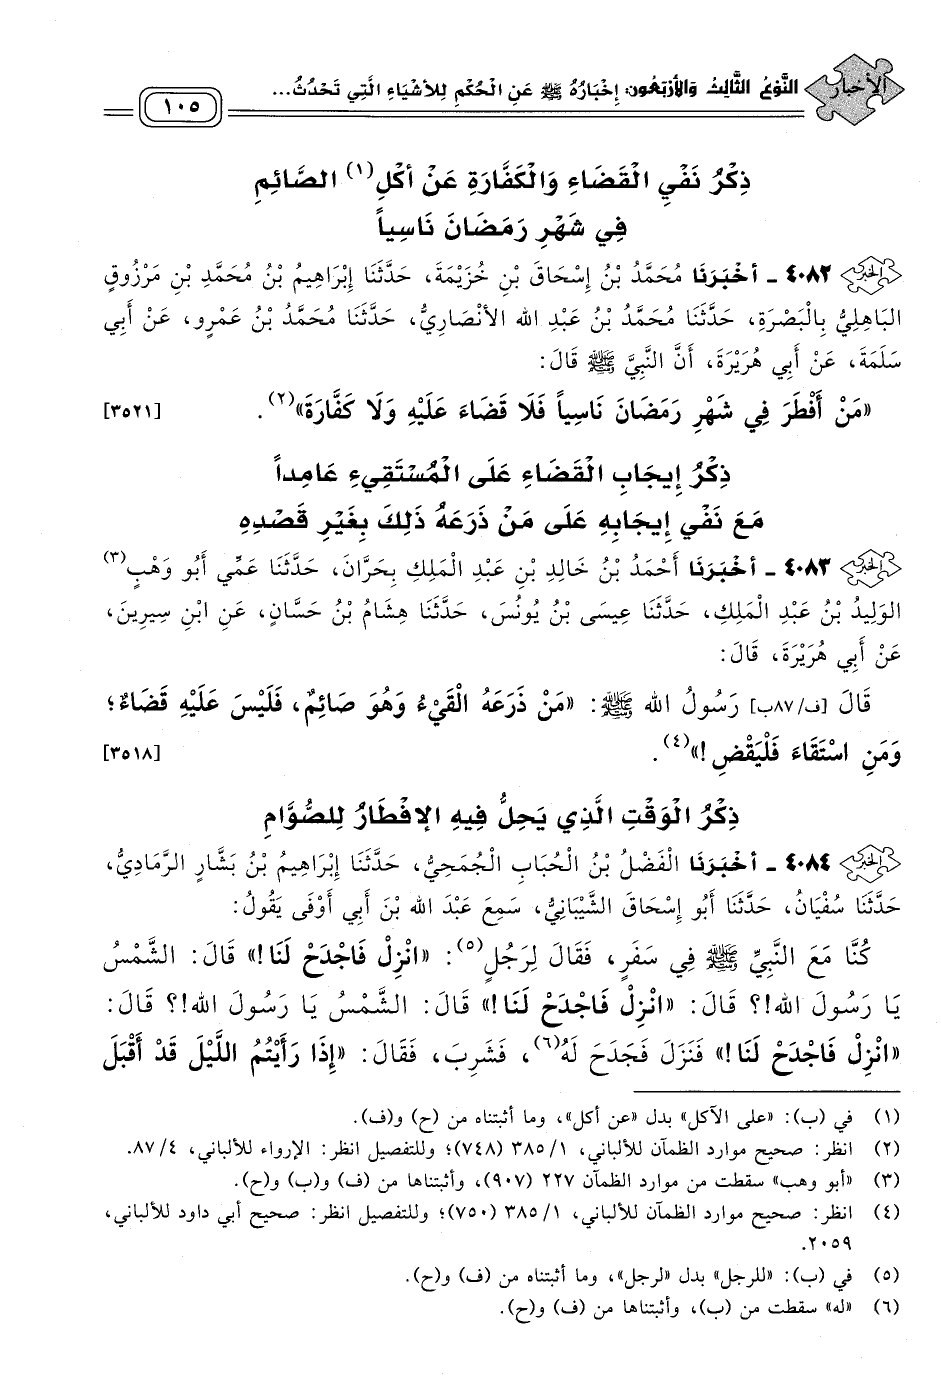 الأخبار
النَّوْعُ الثَّالِثُ وَالأَرْبَعُونَ: إِخْبَارُهُ ﷺ عَنِ الْحُكْمِ لِلأَشْيَاءِ الَّتِي تَحْدُثُ...
١٠٥
ذِكْرُ نَفْيِ الْقَضَاءِ وَالْكَفَّارَةِ عَنْ أكْلِ(١) الصَّائِمِ
فِي شَهْرِ رَمَضَانَ نَاسِياً
الخبر ٤٠٨٢ ـ أخْبَرَنَا مُحَمَّدُ بْنُ إِسْحَاقَ بْنِ خُزَيْمَةَ، حَدَّثَنَا إِبْرَاهِيمُ بْنُ مُحَمَّدِ بْنِ مَرْزُوقٍ
البَاهِلِيُّ بِالْبَصْرَةِ، حَدَّثَنَا مُحَمَّدُ بْنُ عَبْدِ الله الأنْصَارِيُّ، حَدَّثَنَا مُحَمَّدُ بْنُ عَمْرٍو، عَنْ أَبِي
سَلَمَةَ، عَنْ أَبِي هُرَيْرَةَ، أَنَّ النَّبِيَّ ﷺ قَالَ:
«مَنْ أَفْطَرَ فِي شَهْرِ رَمَضَانَ نَاسِياً فَلَا قَضَاءَ عَلَيْهِ وَلَا كَفَّارَةَ»(٢). [٣٥٢١]
ذِكْرُ إِيجَابِ الْقَضَاءِ عَلَى الْمُسْتَقِيءِ عَامِداً
مَعَ نَفْيِ إِيجَابِهِ عَلَى مَنْ ذَرَعَهُ ذَلِكَ بِغَيْرِ قَصْدِهِ
الخبر ٤٠٨٣ ـ أخْبَرَنَا أَحْمَدُ بْنُ خَالِدِ بْنِ عَبْدِ الْمَلِكِ بِحَرَّانَ، حَدَّثَنَا عَمِّي أَبُو وَهْبٍ(٣)
الوَلِيدُ بْنُ عَبْدِ الْمَلِكِ، حَدَّثَنَا عِيسَى بْنُ يُونُسَ، حَدَّثَنَا هِشَامُ بْنُ حَسَّانٍ، عَنِ ابْنِ سِيرِينَ،
عَنْ أَبِي هُرَيْرَةَ، قَالَ:
قَالَ [ف/٨٧ب] رَسُولُ الله ﷺ: «مَنْ ذَرَعَهُ الْقَيْءُ وَهُوَ صَائِمٌ، فَلَيْسَ عَلَيْهِ قَضَاءٌ؛
وَمَنِ اسْتَقَاءَ فَلْيَقْضِ!»(٤). [٣٥١٨]
ذِكْرُ الْوَقْتِ الَّذِي يَحِلُّ فِيهِ الإفْطَارُ لِلصُّوَّامِ
الخبر ٤٠٨٤ ـ أخْبَرَنَا الْفَضْلُ بْنُ الْحُبَابِ الْجُمَحِيُّ، حَدَّثَنَا إِبْرَاهِيمُ بْنُ بَشَّارٍ الرَّمَادِيُّ،
حَدَّثَنَا سُفْيَانُ، حَدَّثَنَا أَبُو إِسْحَاقَ الشَّيْبَانِيُّ، سَمِعَ عَبْدَ الله بْنَ أَبِي أَوْفَى يَقُولُ:
كُنَّا مَعَ النَّبِيِّ ﷺ فِي سَفَرٍ، فَقَالَ لِرَجُلٍ(٥): «انْزِلْ فَاجْدَحْ لَنَا!» قَالَ: الشَّمْسُ
يَا رَسُولَ الله!؟ قَالَ: «انْزِلْ فَاجْدَحْ لَنَا!» قَالَ: الشَّمْسُ يَا رَسُولَ الله!؟ قَالَ:
«انْزِلْ فَاجْدَحْ لَنَا!» فَنَزَلَ فَجَدَحَ لَهُ(٦)، فَشَرِبَ، فَقَالَ: «إِذَا رَأَيْتُمُ اللَّيْلَ قَدْ أَقْبَلَ
(١) في (ب): «على الآكل» بدل «عن أكل»، وما أثبتناه من (ح) و(ف).
(٢) انظر: صحيح موارد الظمآن للألباني، ١/ ٣٨٥ (٧٤٨)؛ وللتفصيل انظر: الإرواء للألباني، ٤/ ٨٧.
(٣) «أبو وهب» سقطت من موارد الظمآن ٢٢٧ (٩٠٧)، وأثبتناها من (ف) و(ب) و(ح).
(٤) انظر: صحيح موارد الظمآن للألباني، ١/ ٣٨٥ (٧٥٠)؛ وللتفصيل انظر: صحيح أبي داود للألباني،
٢٠٥٩.
(٥) في (ب): «للرجل» بدل «لرجل»، وما أثبتناه من (ف) و(ح).
(٦) «له» سقطت من (ب)، وأثبتناها من (ف) و(ح).